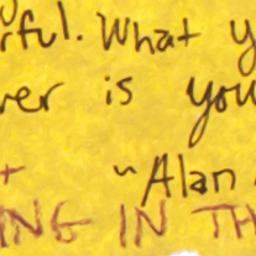 rful. What y
ver is you
~Alan
ING IN TH